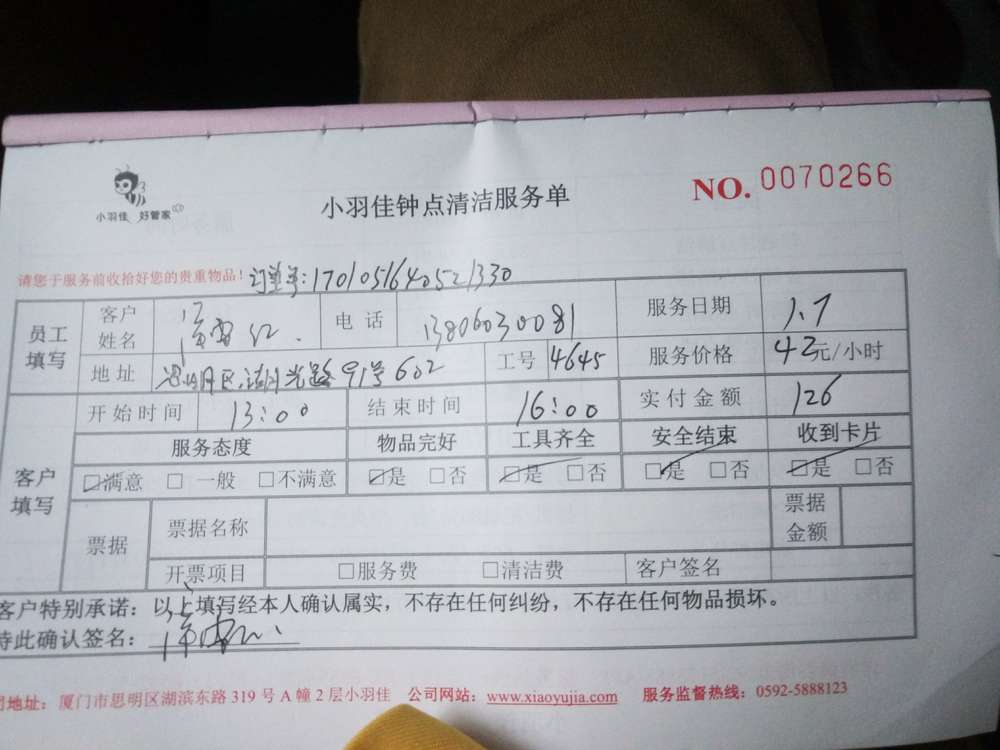 小羽佳 好管家
小羽佳钟点清洁服务单
NO. 0070266
请您于服务前收拾好您的贵重物品! 订单号:1701051640521330
员工填写 客户姓名 电话 13806030081 服务日期 1.7
地址 思明区湖光路91号602 工号 4645 服务价格 42元/小时
客户填写 开始时间 13:00 结束时间 16:00 实付金额 126
服务态度 物品完好 工具齐全 安全结束 收到卡片
☑满意 □一般 □不满意 ☑是 □否 ☑是 □否 ☑是 □否 ☑是 □否
票据 票据名称 票据金额
开票项目 □服务费 □清洁费 客户签名
客户特别承诺:以上填写经本人确认属实,不存在任何纠纷,不存在任何物品损坏。
特此确认签名:
司地址:厦门市思明区湖滨东路 319 号 A 幢 2 层小羽佳 公司网站:www.xiaoyujia.com 服务监督热线:0592-5888123